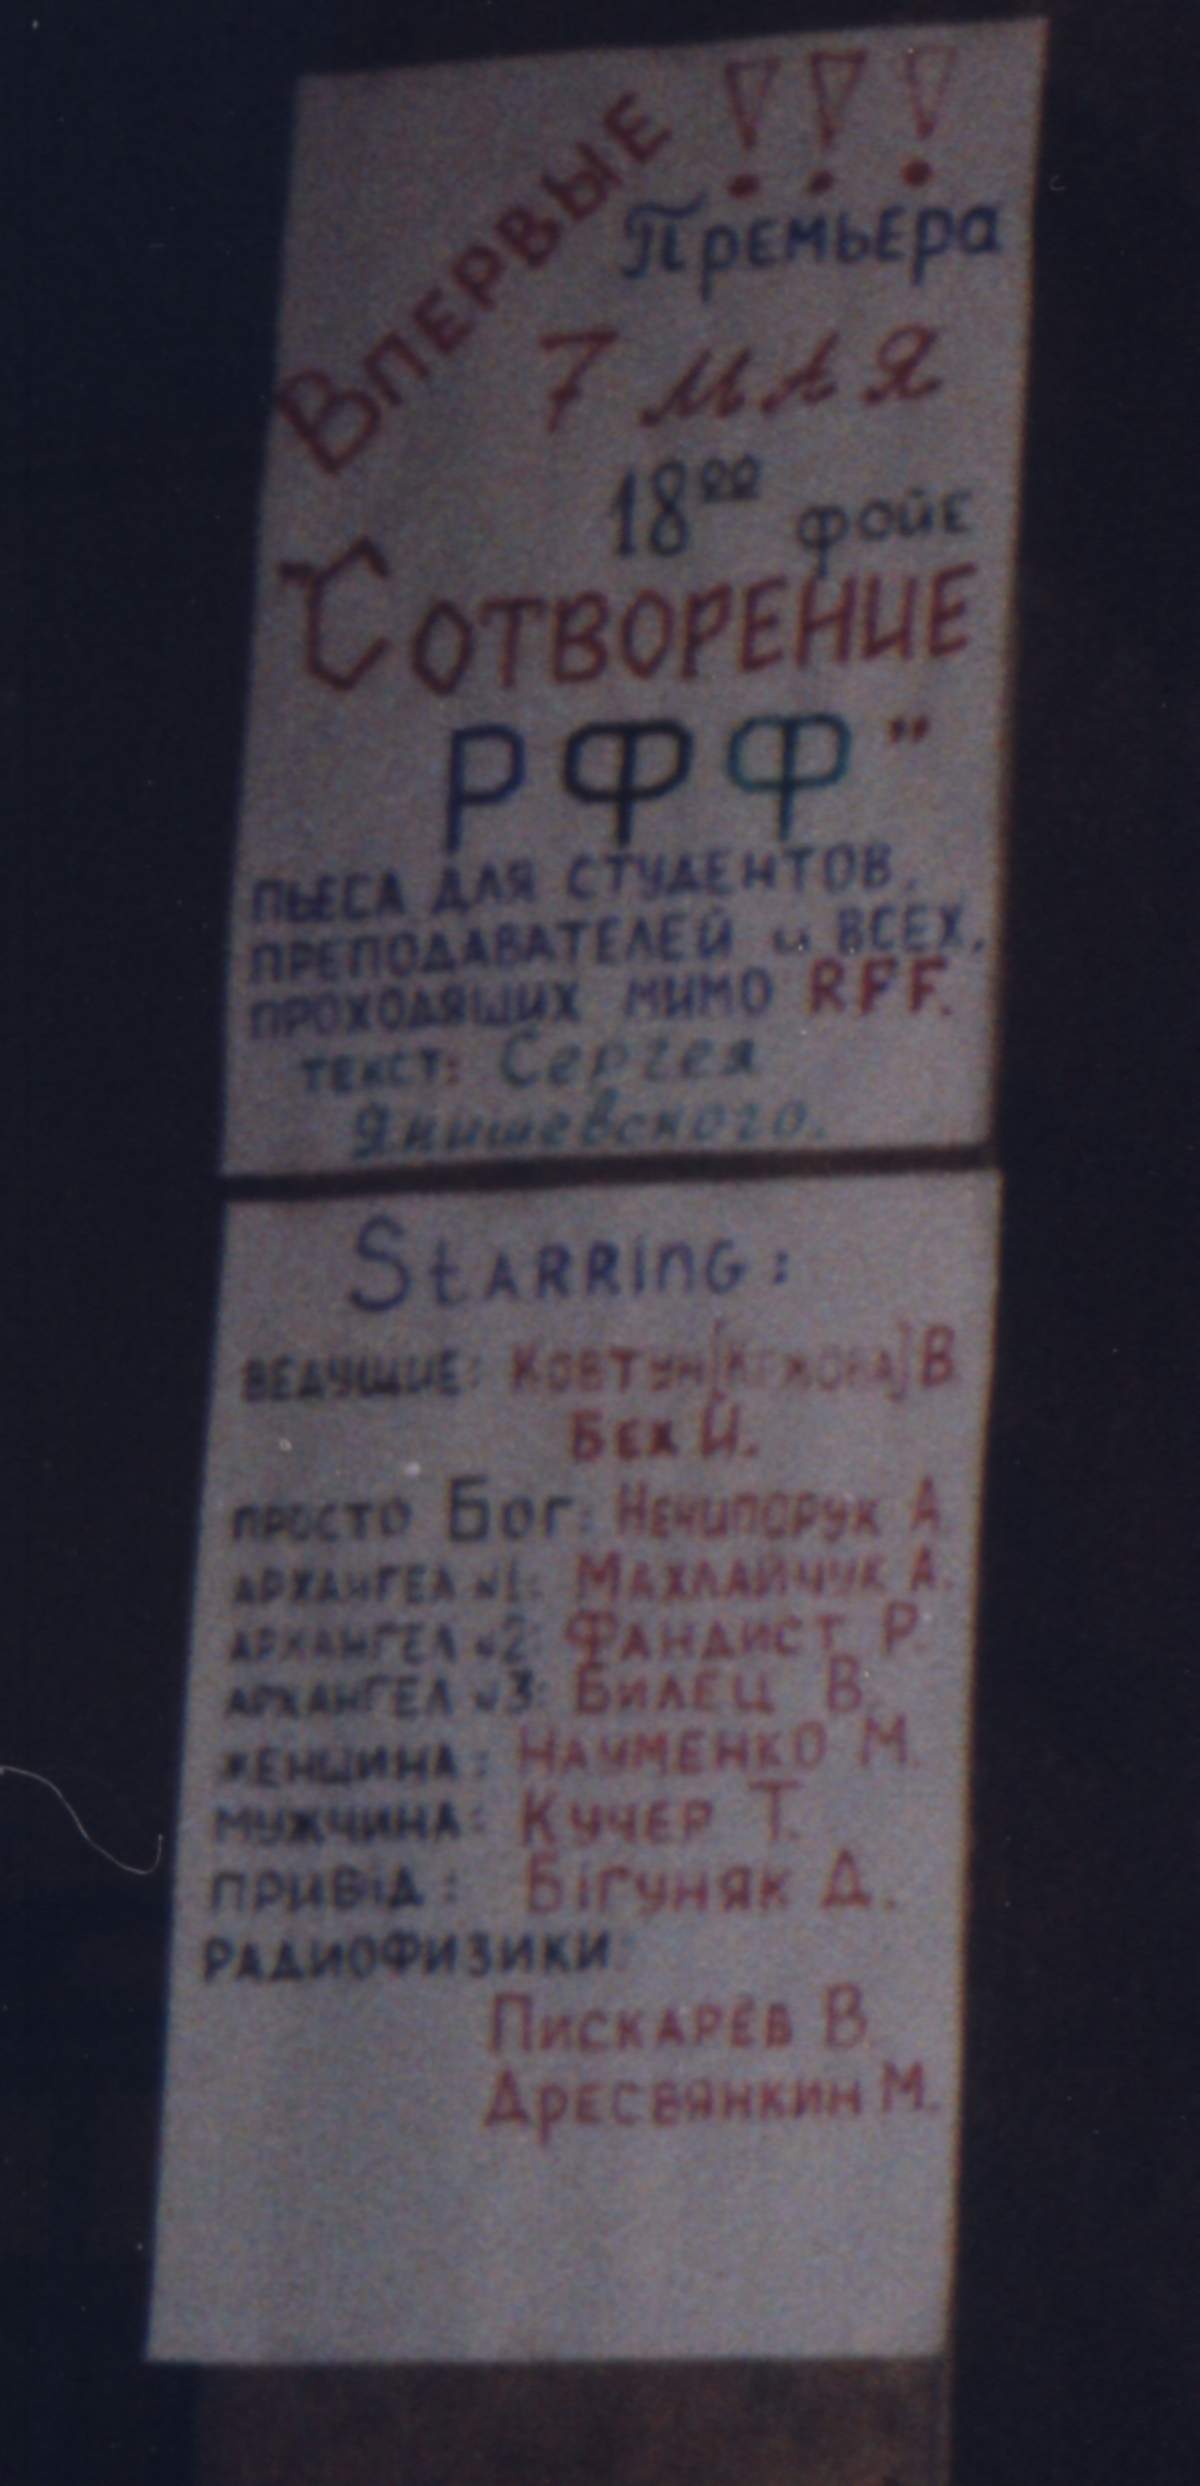 Впервые !!!
Премьера
7 мая
18⁰⁰ фойе
"Сотворение
РФФ"
пьеса для студентов,
преподавателей и всех,
проходящих мимо RFF.
текст: Сергея
Янишевского.
Starring:
Ведущие: Ковтун В.
Бех И.
просто Бог: Нечипорук А.
Архангел №1: Махлайчук А.
Архангел №2: Фандист Р.
Архангел №3: Билец В.
Женщина: Науменко М.
Мужчина: Кучер Т.
Привід: Бігуняк Д.
Радиофизики:
Пискарёв В.
Дресвянкин М.